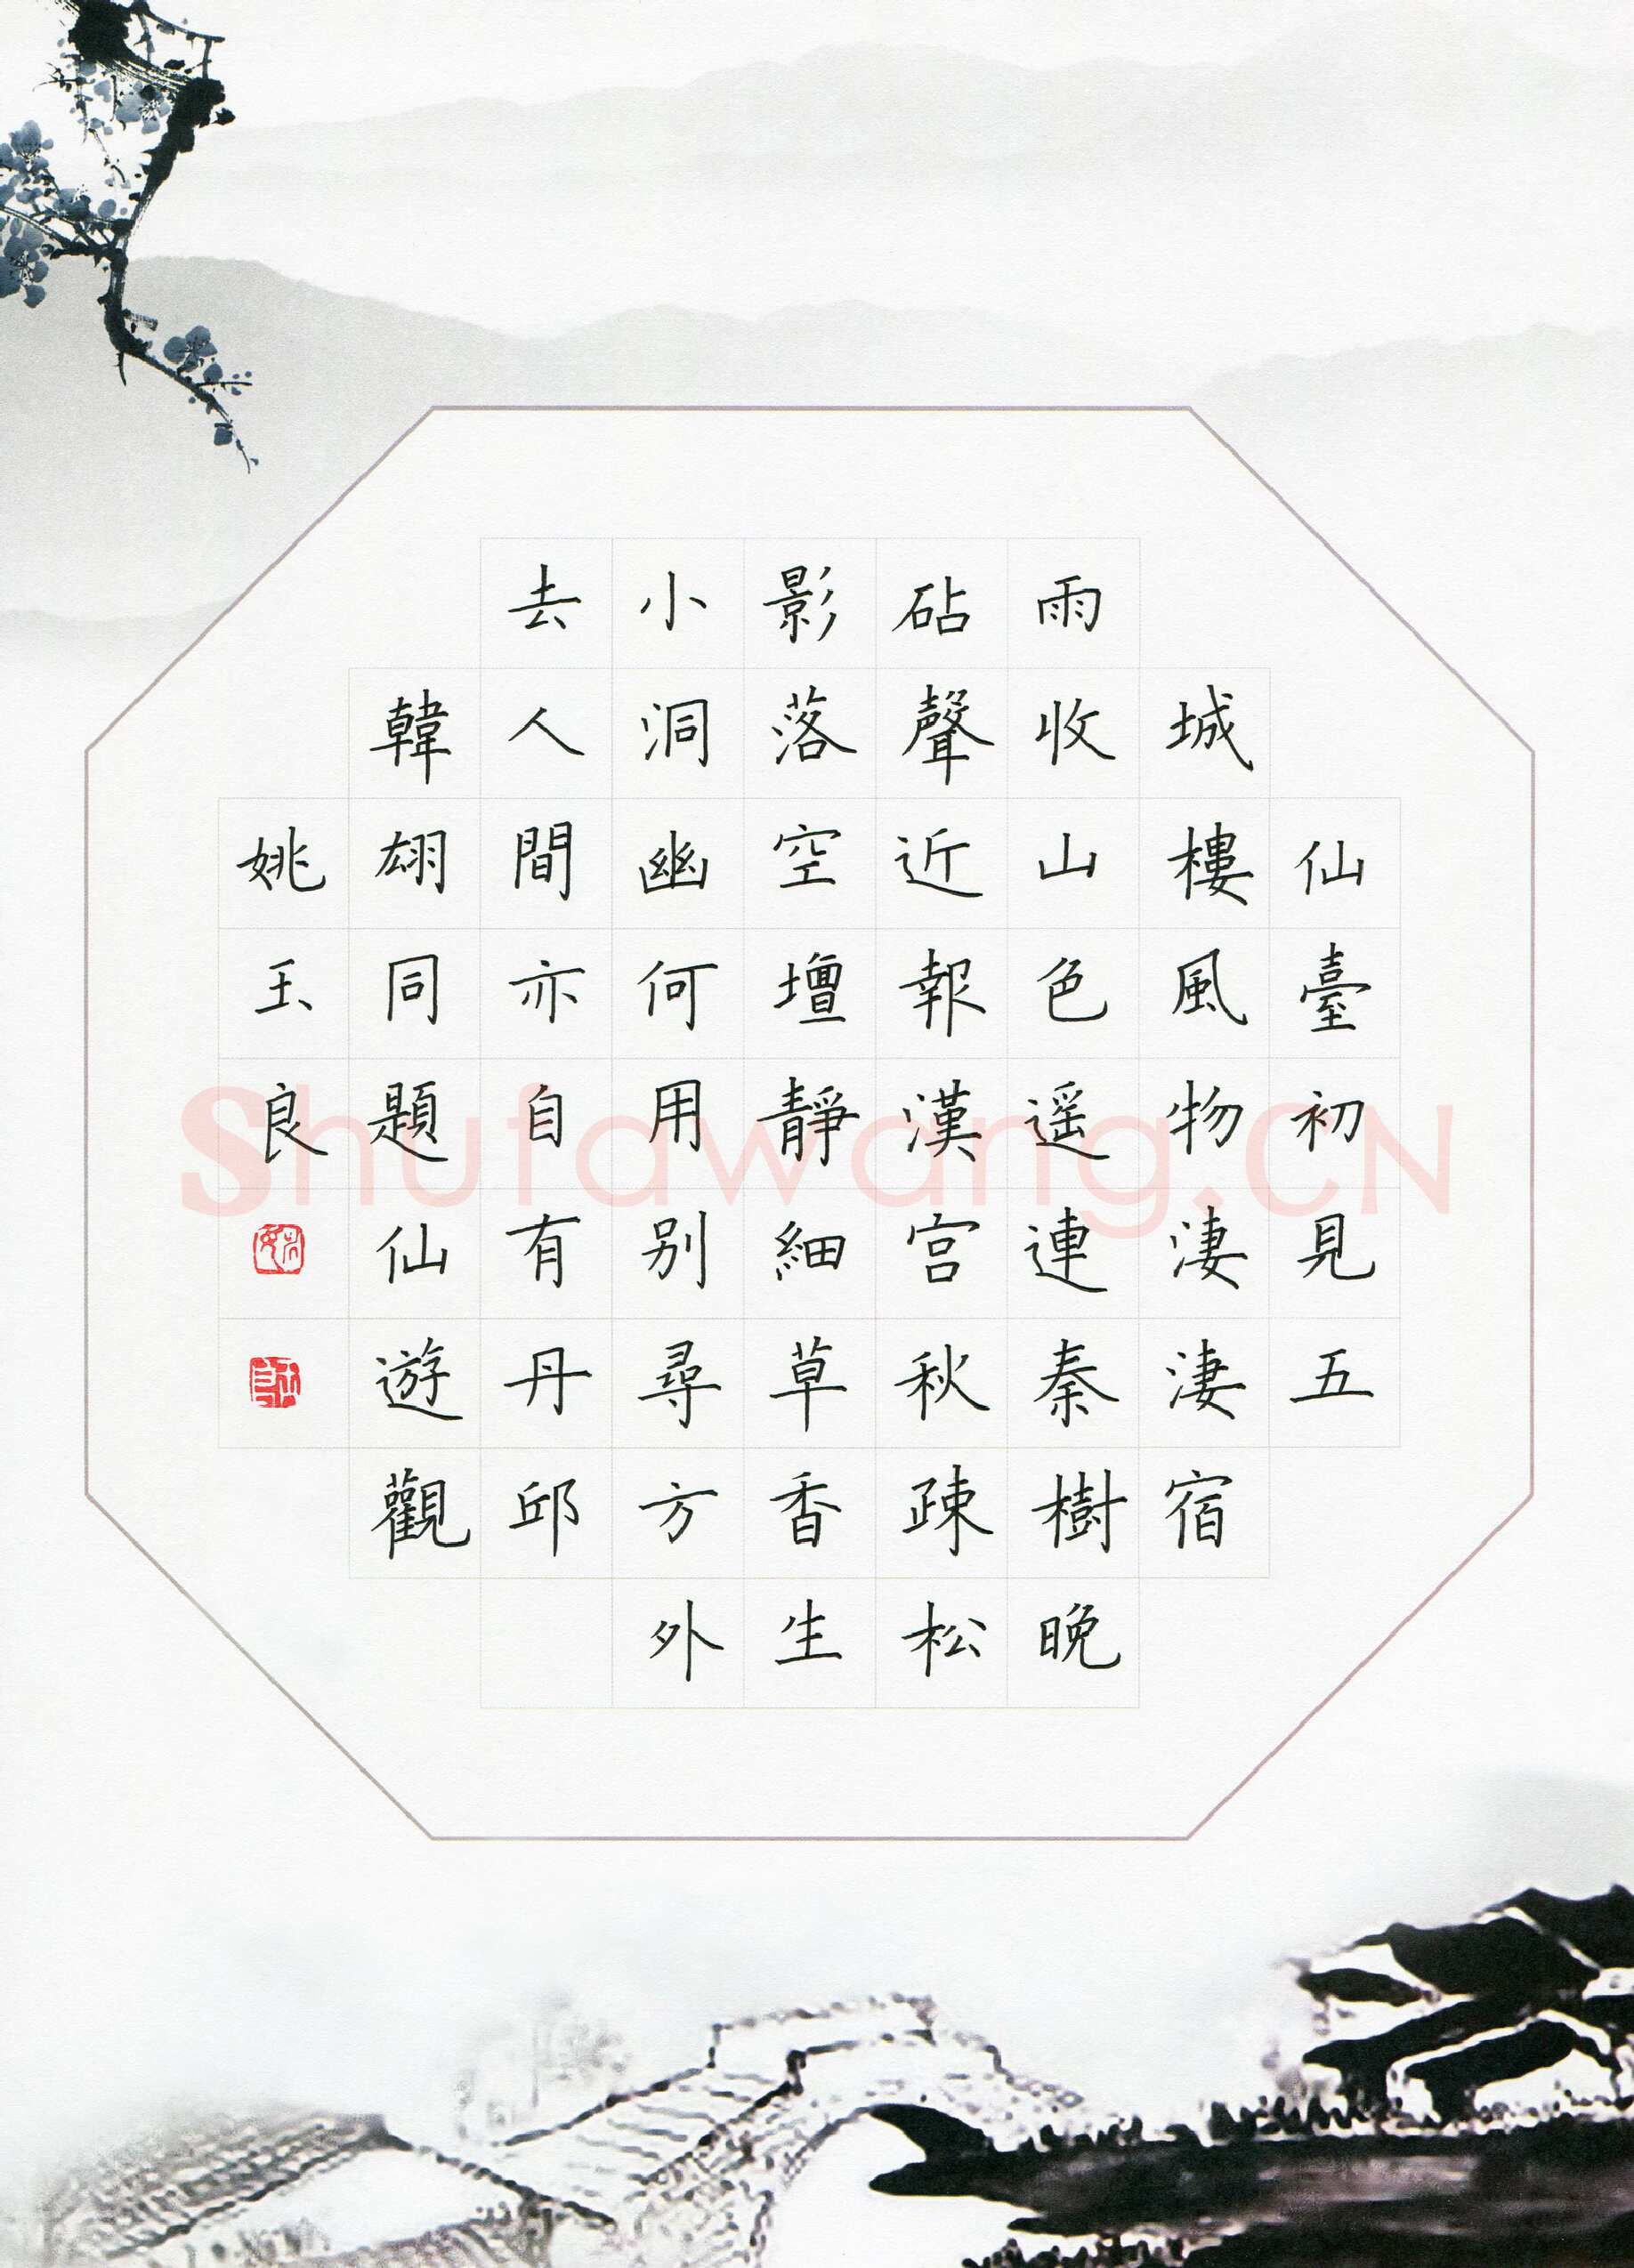 仙臺初見五
城樓風物淒淒宿
雨收山色遥連秦樹晚
砧聲近報漢宮秋疎松
影落空壇靜細草香生
小洞幽何用别尋方外
去人間亦自有丹邱
韓翃同題仙遊觀
姚玉良
Shufawang.CN